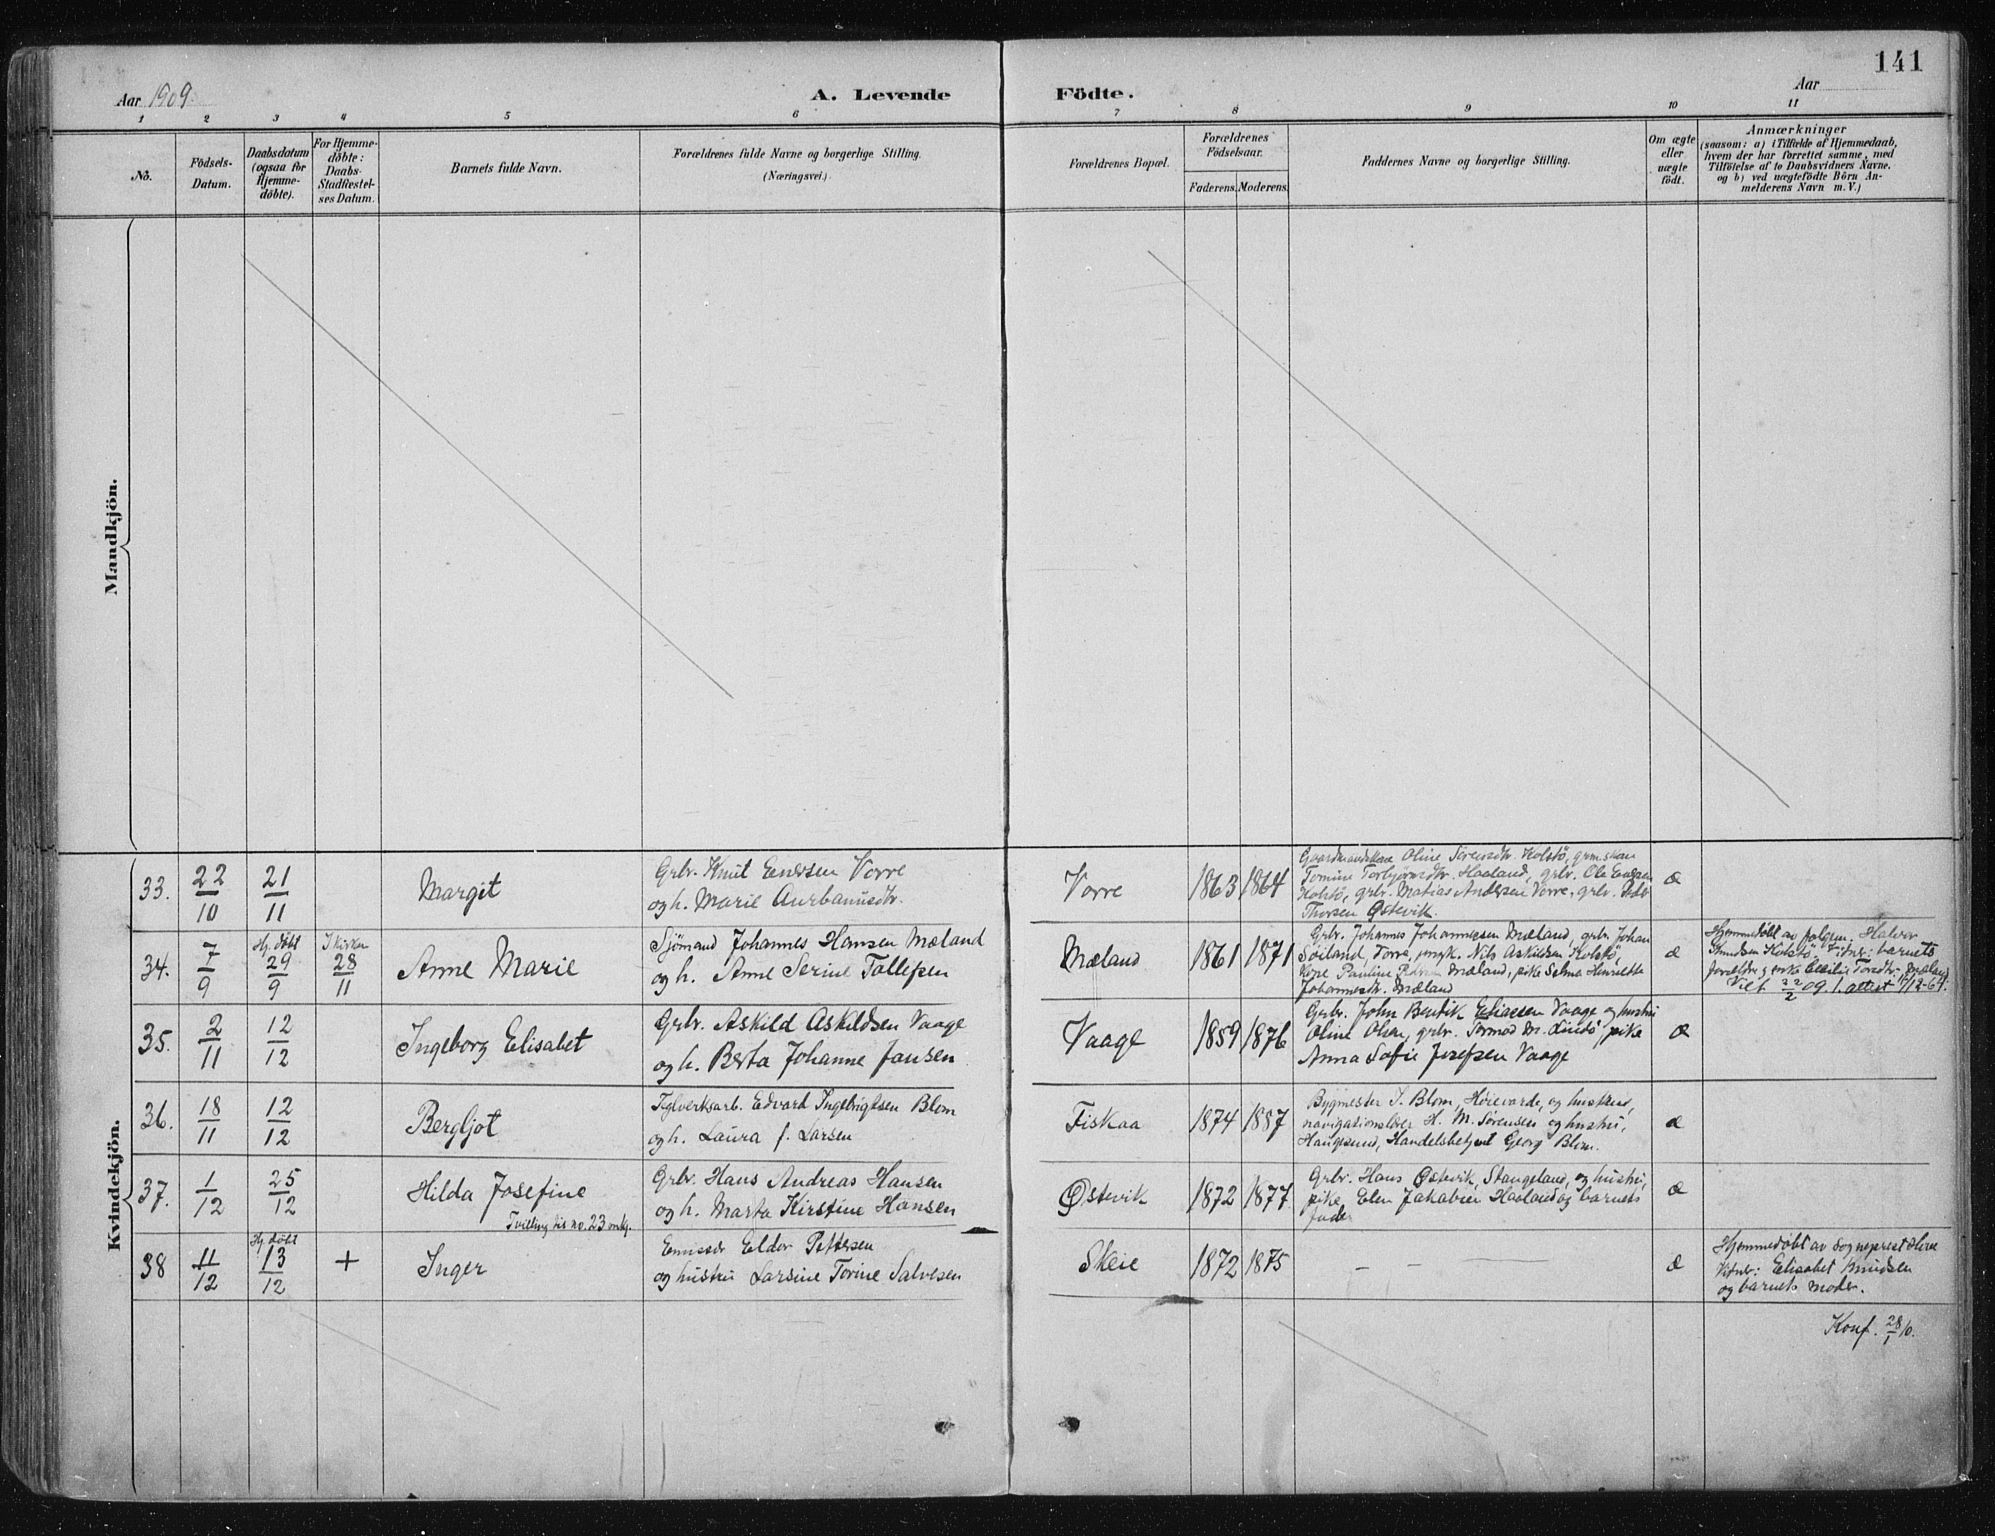 141
Aar 1909.
A. Levende Födte.
Aar
1 2 3 4 5 6 7 8 9 10 11
No.
Födsels-Datum.
Daabsdatum (ogsaa for Hjemme-döbte).
For Hjemme-döbte: Daabs-Stadfæstel-ses Datum.
Barnets fulde Navn.
Forældrenes fulde Navne og borgerlige Stilling.
(Næringsvei.)
Forældrenes Bopæl.
Forældrenes Födselsaar.
Faderens. Moderens.
Faddernes Navne og borgerlige Stilling.
Om ægte eller uægte födt.
Anmærkninger
(saasom: a) i Tilfælde af Hjemmedaab,
hvem der har forrettet samme, med
Tilföielse af to Daabsvidners Navne.
og b) ved uægtefödte Börn An-
melderens Navn m. V.)
Mandkjön.
Kvindekjön.
33. 22/10 21/11 Margit
Grbr. Knut Enersen Vorre
og h. Marie Aurbanusdtr.
Vorre 1863 1864
Gaardmandskone Oline Sörensdtr. Kolstö, grmskone
Tomine Torbjörnsdtr. Haaland, grbr. Ole Enersen
Kolstö, grbr. Matias Andersen Vorre, grbr. Peder
Thorsen Østevik.
æ
34. 7/9 Hj. döbt 29/9 I kirken 28/11 Anne Marie
Sjömand Johannes Hansen Mæland
og h. Anne Serine Tollefsen
Mæland 1861 1871
Grbr. Johannes Johannessen Mæland, grbr. Johan
Söiland, Torre, ungk. Nils Askildsen Kolstö,
Kone Pauline Mæland, pike Selma Henriette
Johannesdtr. Mæland
æ
Hjemmedöbt av Halvor
Knudsen Kolstö. Vidner: barnets
forældre, enke Tordtr. Mæland
Vief 22/2 09. 1. attest 17/12-64.
35. 2/11 12/12 Ingeborg Elisabet
Grbr. Askild Askildsen Vaage
og h. Berta Johanne Jansen
Vaage 1859 1876
Grbr. John Bentik Eliassen Vaage og hustru
Oline Olsen, grbr. Tormod M. Lindö, pike
Anna Sofie Josefsen Vaage
æ
36. 18/11 12/12 Bergljot
Teglverksarb. Edvard Ingebrigtsen Blom
og h. Laura f. Larsen
Fiskaa 1874 1887
Bygmester J. Blom, Höievarde, og hustru,
navigationslærer H. M. Sörensen og hustru,
Haugesund, Handelsbetjent Georg Blom.
æ
37. 1/12 25/12 Hilda Josefine
Tvilling til no. 23 mk.
Grbr. Hans Andreas Hansen
og h. Marta Kirstine Hansen
Østevik 1872 1877
Grbr. Hans Østevik, Stangeland, og hustru,
pike, Elen Jakobsen Haaland og barnets
fader
æ
38 11/12 Hj. döbt 13/12 + Inger
Emissær Eldor Pettersen
og hustru Larsine Torine Salvesen
Skeie 1872 1875 — — —
æ
Hjemmedöbt av Sogneprest Hove
Vidner: Elisabet Knudsen
og barnets moder.
Konf. 28/1 10.